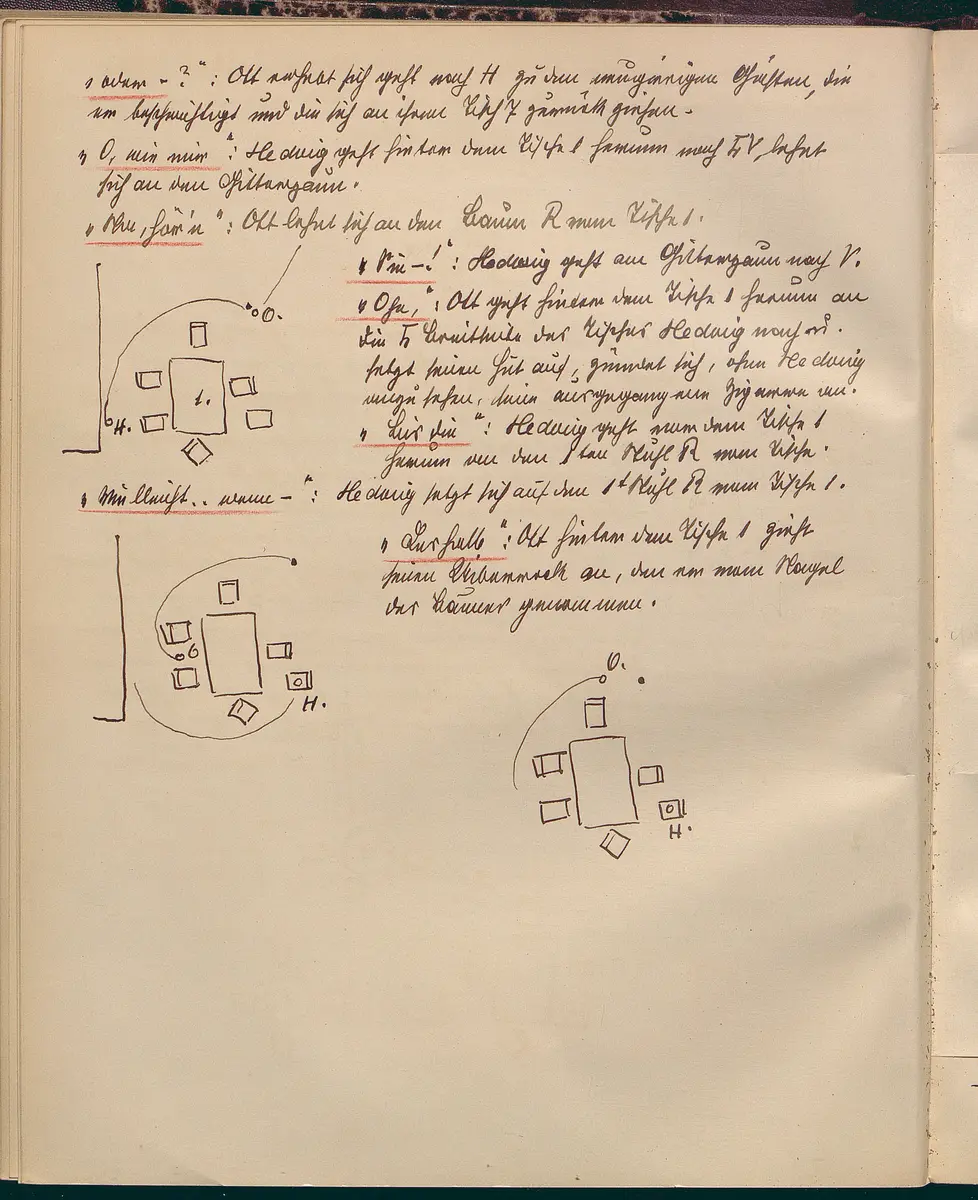 „oder – ?“: Ott erhebt sich geht nach H zu den neugierigen Gästen, die
er beschwichtigt und die sich an ihren Tisch 7 zurück ziehen.
„O, wie mir“: Hedwig geht hinter dem Tische 1 herum nach LV lehnt
sich an den Gitterzaun.
„Na, hör'n“: Ott lehnt sich an den Baum R vom Tische 1.
„Sie –!“: Hedwig geht am Gitterzaun nach V.
„Ohe,“: Ott geht hinter dem Tische 1 herum an
die L Breitseite des Tisches Hedwig nach
setzt seinen Hut auf, zündet sich, ohne Hedwig
anzusehen, seine ausgegangene Zigarre an.
„Bis die“: Hedwig geht vor dem Tische 1
herum an den 1ten Stuhl R vom Tische.
„Vielleicht.. wenn –“: Hedwig setzt sich auf den 1t Stuhl R vom Tische 1.
„Deshalb“: Ott hinter dem Tische 1 zieht
seinen Ueberrock an, den er vom Nagel
des Baumes genommen.
O.
1.
H.
O
H.
O.
H.